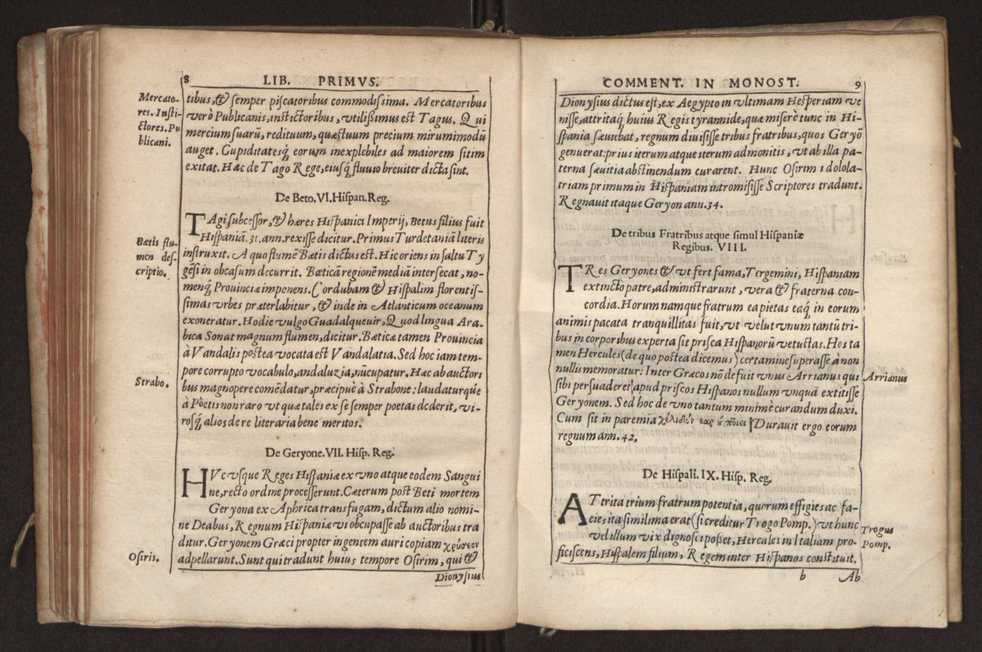 8 LIB. PRIMVS.
Mercato-
res. Insti-
ctores. Pu
blicani.
tibus, & semper piscatoribus commodissima. Mercatoribus
verò Publicanis, instictoribus, vtilißimus est Tagus. Qui
mercium suarū, redituum, quæstuum precium mirum in modū
auget. Cupiditatesq́ eorum inexplebiles ad maiorem sitim
exitat. Hæc de Tago Rege, eiusq́ fluuio breuiter dicta sint.
De Beto. VI. Hispan. Reg.
TAgi successor, & hæres Hispanici Imperij, Betus filius fuit
Hispaniā. 31. ann. rexisse dicitur. Primus Turdetaniā literis
Bætis flu-
men des-
criptio.
instruxit. A quo flumē Bætis dictus est. Hic oriens in saltu Ty
gesi in obcasum decurrit. Bæticā regionē mediā intersecat, no-
menq́ Prouinciæ imponens. Cordubam & Hispalim florentis-
simas vrbes præterlabitur, & inde in Atlanticum oceanum
exoneratur. Hodie vulgo Guadalqueuir, Quod lingua Ara-
bica Sonat magnum flumen, dicitur. Bætica tamen Prouincia
à Vandalis postea vocata est Vandalatia. Sed hoc iam tem-
pore corrupto vocabulo, andaluzia, nūcupatur. Hæc ab auctori
Strabo.
bus magnopere comēdatur, præcipuè à Strabone: laudaturque
à Poëtis non raro vt quæ tales ex se semper poetas dederit, vi-
rosq́ alios de re literaria bene meritos.
De Geryone. VII. Hisp. Reg.
HVcvsque Reges Hispaniæ ex vno atque eodem Sangui
ne, recto ordine processerunt. Cæterum post Beti mortem
Geryona ex Aphrica transfugam, dictum alio nomi-
ne Deabus, Regnum Hispaniæ vi obcupasse ab auctoribus tra
ditur. Geryonem Græci propter ingentem auri copiam χρύσεον
Osiris.
adpellarunt. Sunt qui tradunt huius tempore Osirim, qui &
Dionysius
COMMENT. IN MONOST. 9
Dionysius dictus est, ex Aegypto in vltimam Hesperiam ve
nisse, attritaq́ huius Regis tyrannide, qua miserè tunc in Hi-
spania sæuiebat, regnum diuisisse tribus fratribus, quos Geryō
genuerat: prius iterum atque iterum admonitis, vt ab illa pa-
terna sæuitia abstinendum curarent. Hunc Osirim idolola-
triam primum in Hispaniam intromisisse Scriptores tradunt.
Regnauit itaque Geryon ann. 34.
De tribus Fratribus atque simul Hispaniæ
Regibus. VIII.
TRes Geryones & vt fert fama, Tergemini, Hispaniam
extincto patre, administrarunt, vera & fraterna con-
cordia. Horum namque fratrum ea pietas eaq́ in eorum
animis pacata tranquillitas fuit, vt velut vnum tantū tri-
bus in corporibus experta sit prisca Hispanorū vetustas. Hos ta
men Hercules (de quo postea dicemus) certamine superasse à non
nullis memoratur: Inter Græcos nō defuit vnus Arrianus qui
Arrianus
sibi persuaderet apud priscos Hispanos nullum vnquā extitisse
Geryonem. Sed hoc de vno tantum minimè curandum duxi.
Cum sit in paremia Durauit ergo eorum
regnum ann. 42.
De Hispali. IX. Hisp. Reg.
ATtrita trium fratrum potentia, quorum effigies ac fa-
cies, ita simillima erat (si creditur Trogo Pomp.) vt hunc
Trogus
Pomp.
vel illum vix dignosci posset, Hercules in Italiam pro-
ficiscens, Hispalem filium, Regem inter Hispanos constituit.
b Ab